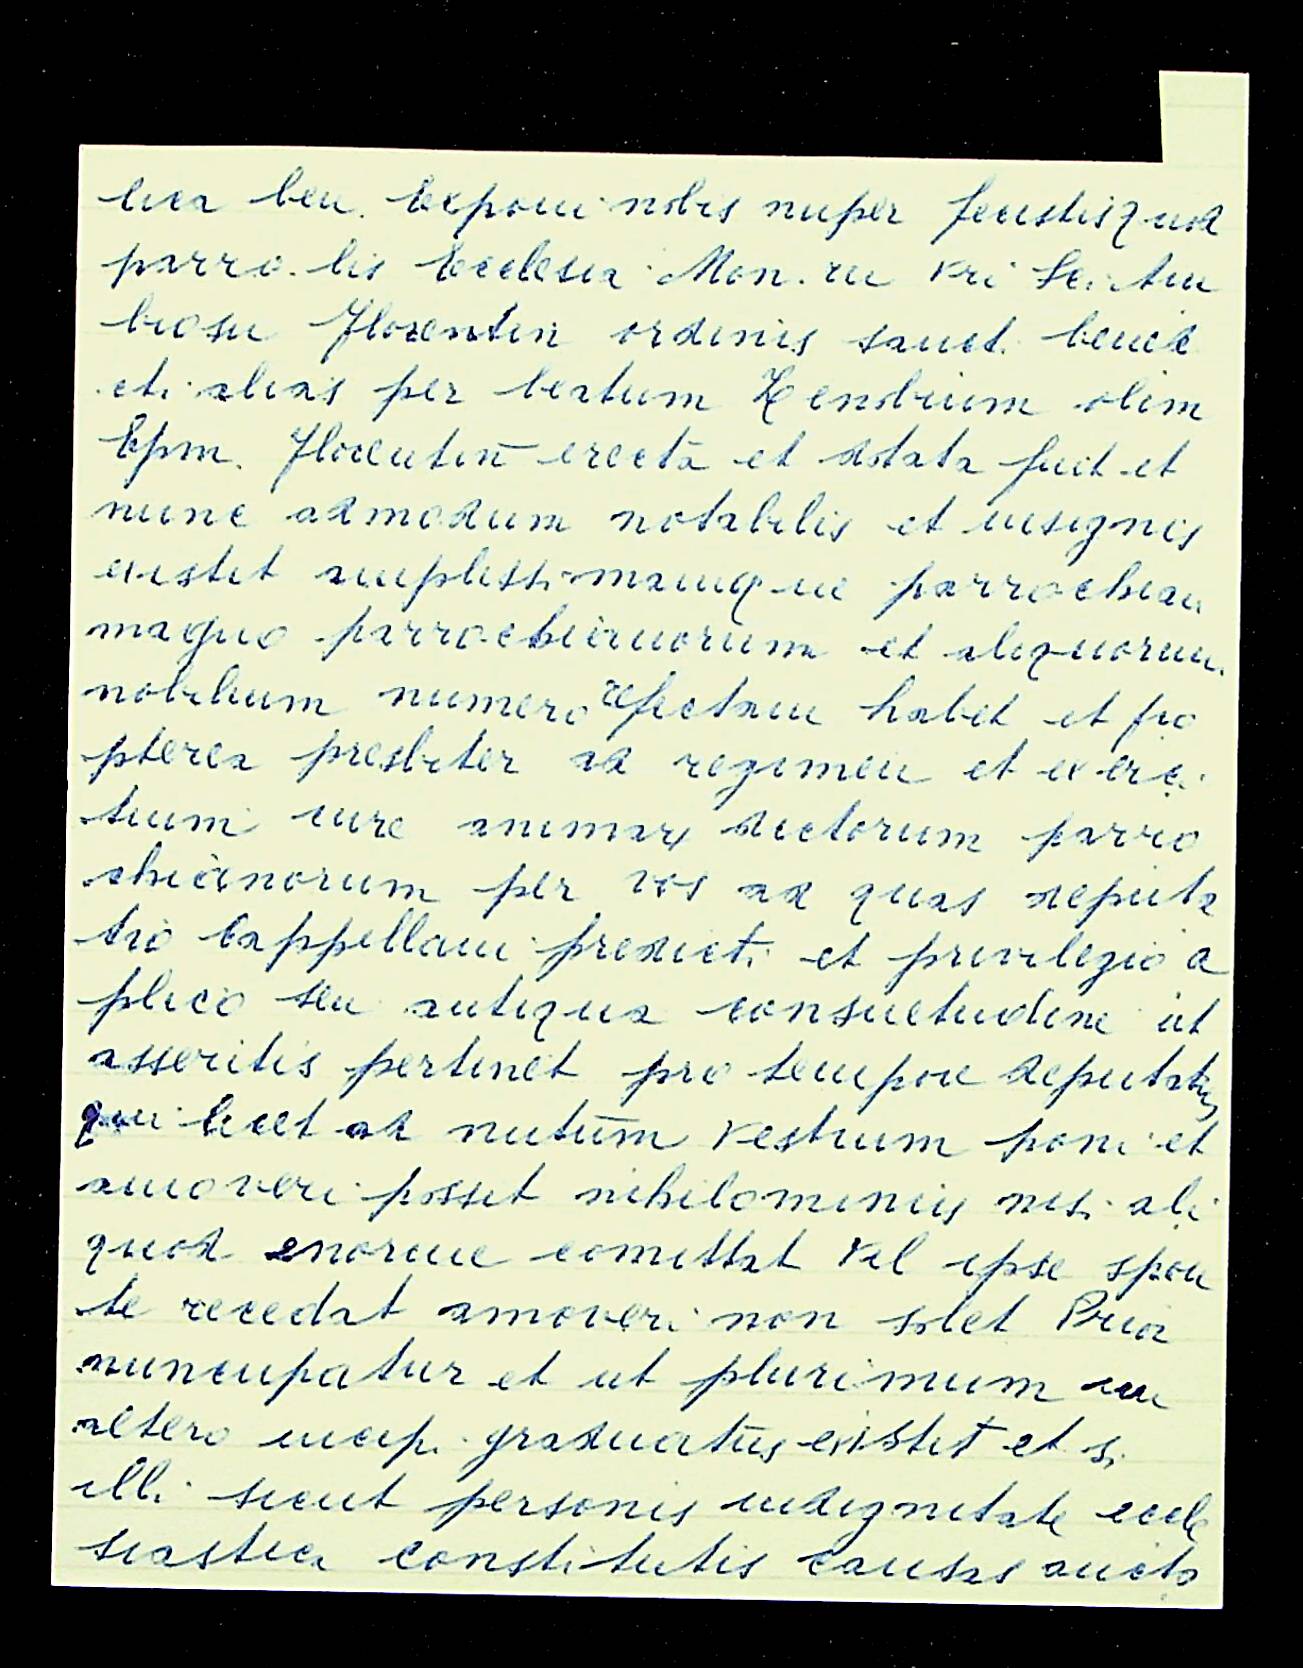 lica ben. Exponi nobis nuper fecistis quod
parro. lis Ecclesia Mon. rii vri Sci Am
brosii Florentin ordinis sanct. bened
cti alias per beatum Zenobium olim
Epm. Florentin erecta et dotata fuit et
nunc admodum notabilis et insignis
existit amplissimamque parrochiam
magno parrochianorum et aliquorum
nobilium numero refectam habet et pro
pterea presbiter ad regimen et exerci
tium cure animarum dictorum parro
chianorum per vos ad quas deputa
tio Cappellani predicti et privilegio a
plico seu antiqua consuetudine ut
asseritis pertinet pro tempore deputatus
qui licet ad nutum vestrum poni et
amoveri possit nihilominus nisi ali
quod enorme comittat vel ipse spon
te recedat amoveri non solet Prior
nuncupatur et ut plurimum in
altero iurip. graduatus existit et si
illi sicut personis indignitate eccle
siastica constitutis causas aucto